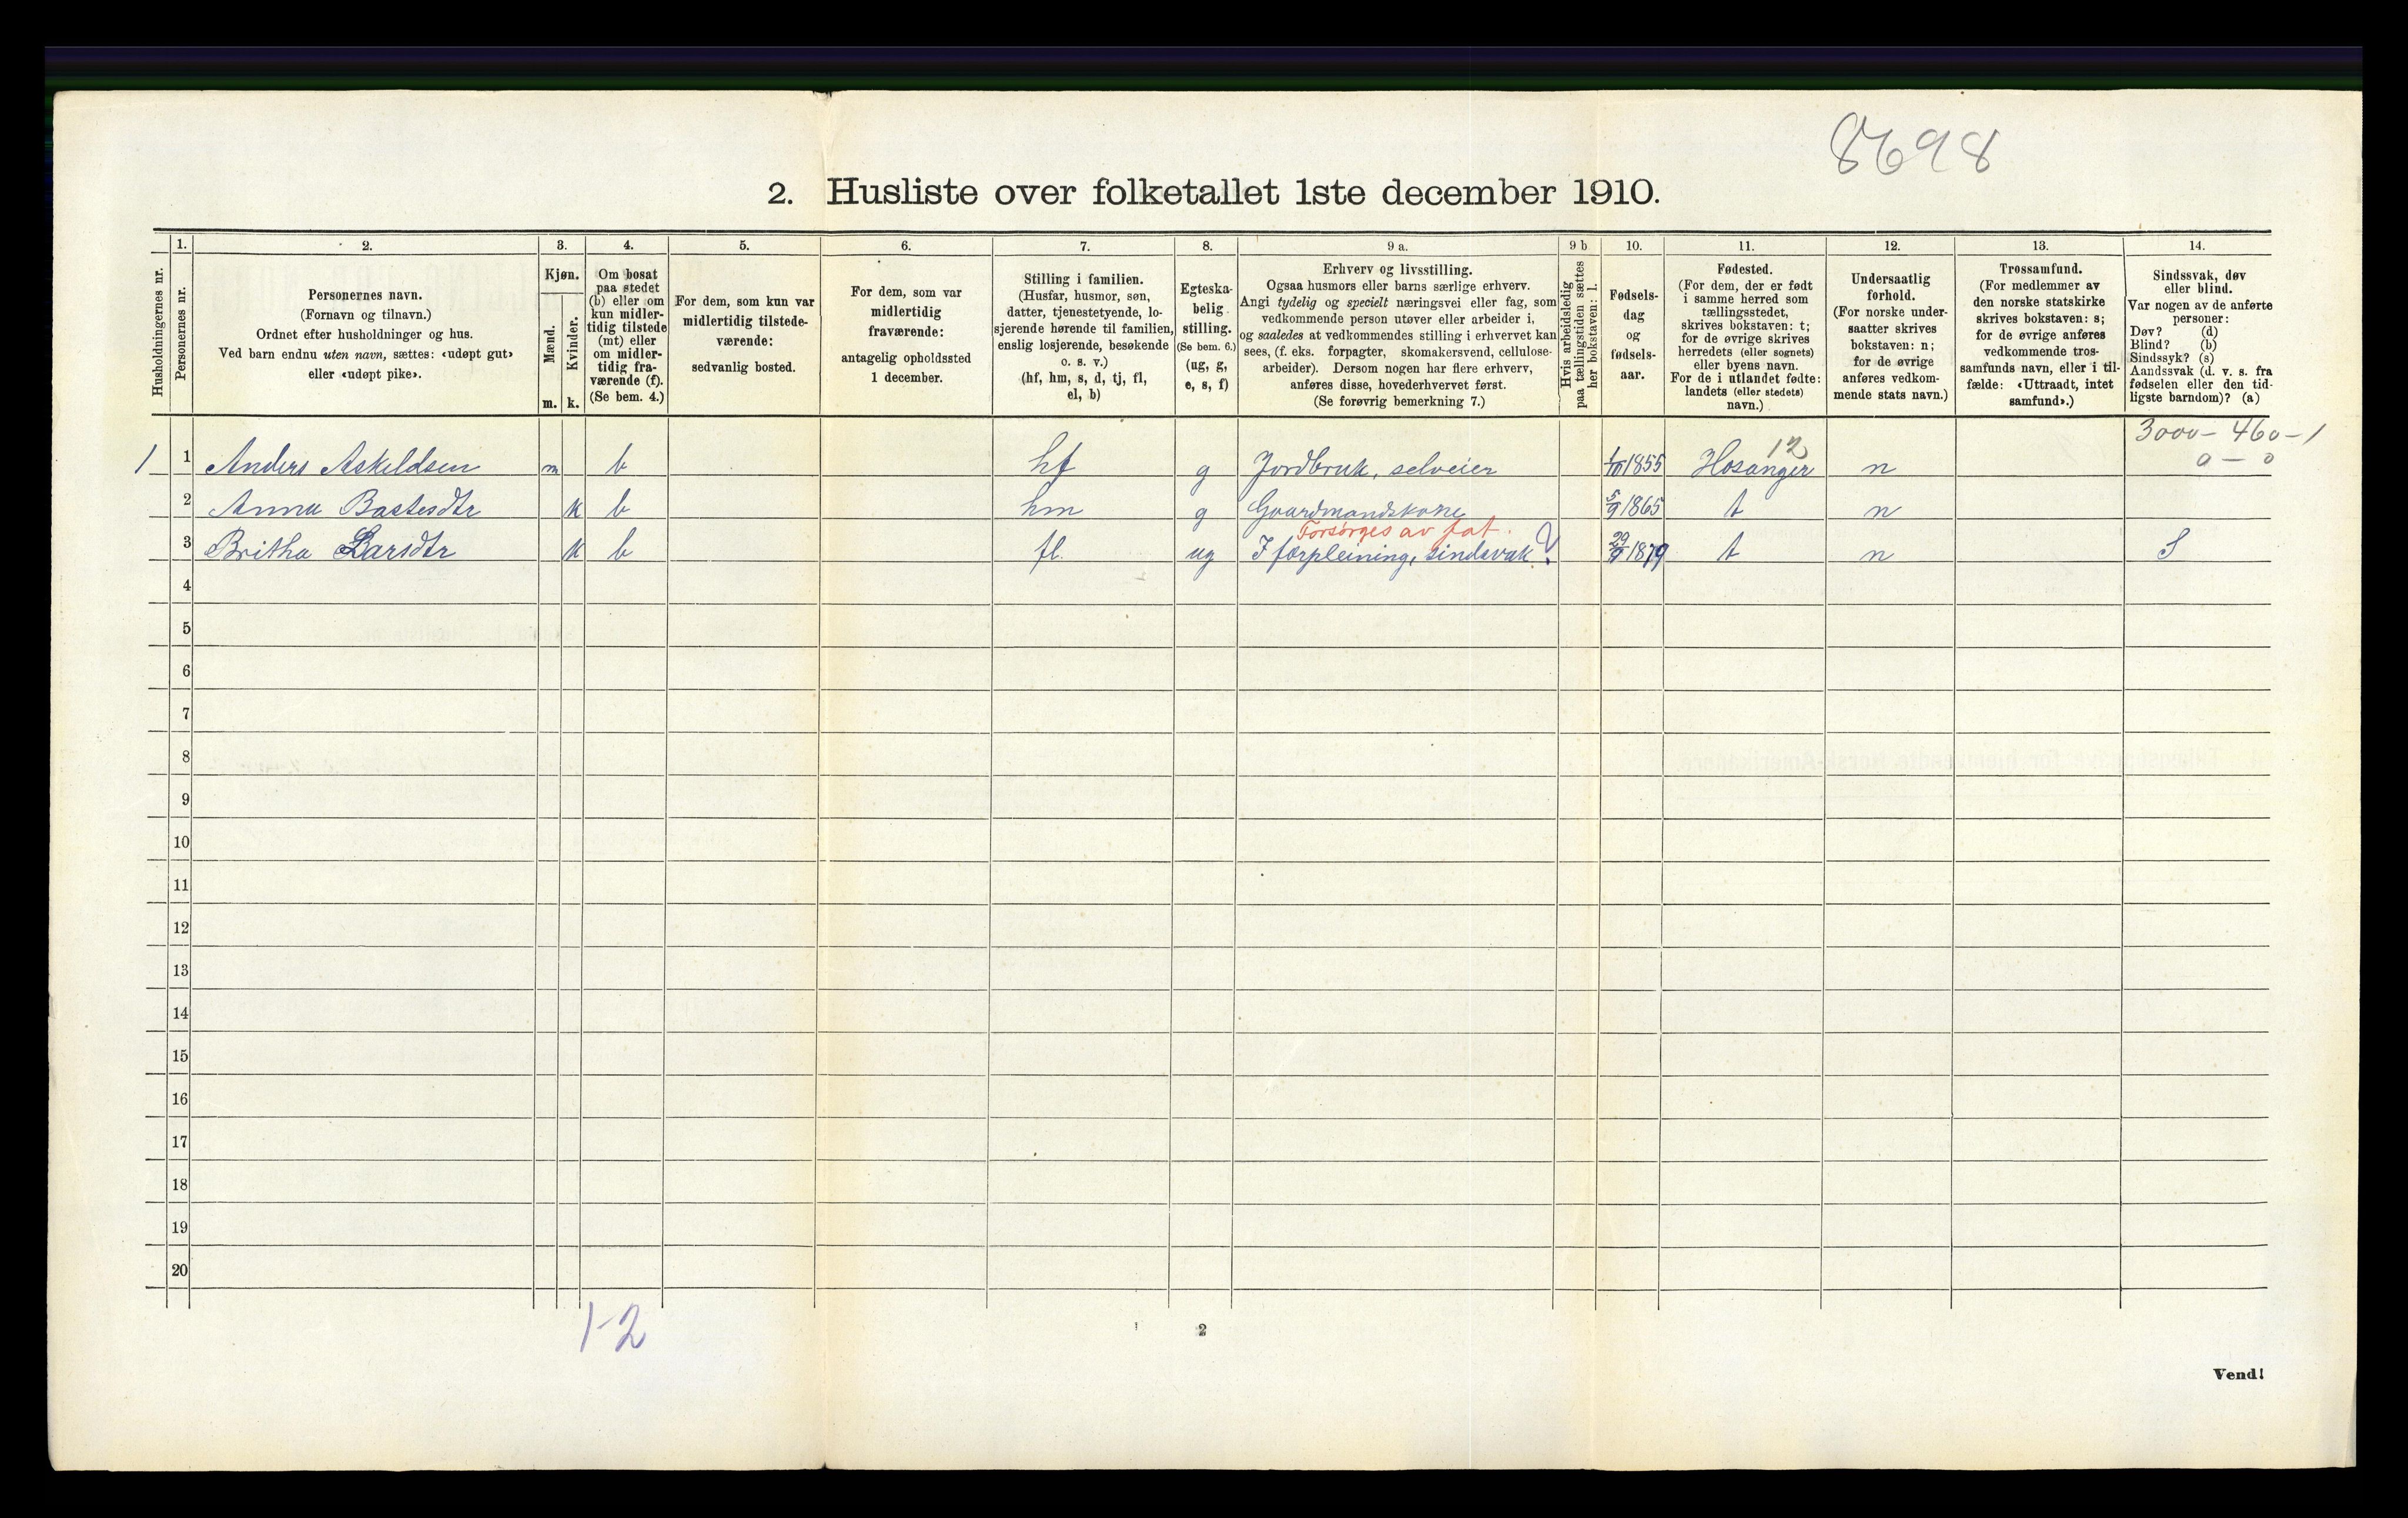 8698
2. Husliste over folketallet 1ste december 1910.
1. 2. 3. 4. 5. 6. 7. 8. 9 a. 9 b 10. 11. 12. 13. 14.
Husholdningernes nr.
Personernes nr.
Personernes navn.
(Fornavn og tilnavn.)
Ordnet efter husholdninger og hus.
Ved barn endnu uten navn, sættes: «udøpt gut»
eller «udøpt pike».
Kjøn.
Mænd.
Kvinder.
m. k.
Om bosat
paa stedet
(b) eller om
kun midler-
tidig tilstede
(mt) eller
om midler-
tidig fra-
værende (f).
(Se bem. 4.)
For dem, som kun var
midlertidig tilstede-
værende:
sedvanlig bosted.
For dem, som var
midlertidig
fraværende:
antagelig opholdssted
1 december.
Stilling i familien.
(Husfar, husmor, søn,
datter, tjenestetyende, lo-
sjerende hørende til familien,
enslig losjerende, besøkende
o. s. v.)
(hf, hm, s, d, tj, fl,
el, b)
Egteska-
belig
stilling.
(Se bem. 6.)
(ug, g,
e, s, f)
Erhverv og livsstilling.
Ogsaa husmors eller barns særlige erhverv.
Angi tydelig og specielt næringsvei eller fag, som
vedkommende person utøver eller arbeider i,
og saaledes at vedkommendes stilling i erhvervet kan
sees, (f. eks. forpagter, skomakersvend, cellulose-
arbeider). Dersom nogen har flere erhverv,
anføres disse, hovederhvervet først.
(Se forøvrig bemerkning 7.)
Hvis arbeidsledig
paa tællingstiden sættes
her bokstaven: l.
Fødsels-
dag
og
fødsels-
aar.
Fødested.
(For dem, der er født
i samme herred som
tællingsstedet,
skrives bokstaven: t;
for de øvrige skrives
herredets (eller sognets)
eller byens navn.
For de i utlandet fødte:
landets (eller stedets)
navn.)
Undersaatlig
forhold.
(For norske under-
saatter skrives
bokstaven: n;
for de øvrige
anføres vedkom-
mende stats navn.)
Trossamfund.
(For medlemmer av
den norske statskirke
skrives bokstaven: s;
for de øvrige anføres
vedkommende tros-
samfunds navn, eller i til-
fælde: «Uttraadt, intet
samfund».)
Sindssvak, døv
eller blind.
Var nogen av de anførte
personer:
Døv? (d)
Blind? (b)
Sindssyk? (s)
Aandssvak (d. v. s. fra
fødselen eller den tid-
ligste barndom)? (a)
12 3000 - 460 - 1
1 1 Anders Askildsen m b hf g Jordbruk, selveier 1/10 1855 Hosanger n 0 - 0
2 Anna Bastesdtr k b hm g Gaardmandskone 5/9 1865 t n
Forsørges av fat.
3 Britha Larsdtr k b fl. ug I forpleining, sindsvak ? 29/9 1879 t n S
4
5
6
7
8
9
10
11
12
13
14
15
16
17
18
19
20
1-2
2
Vend!